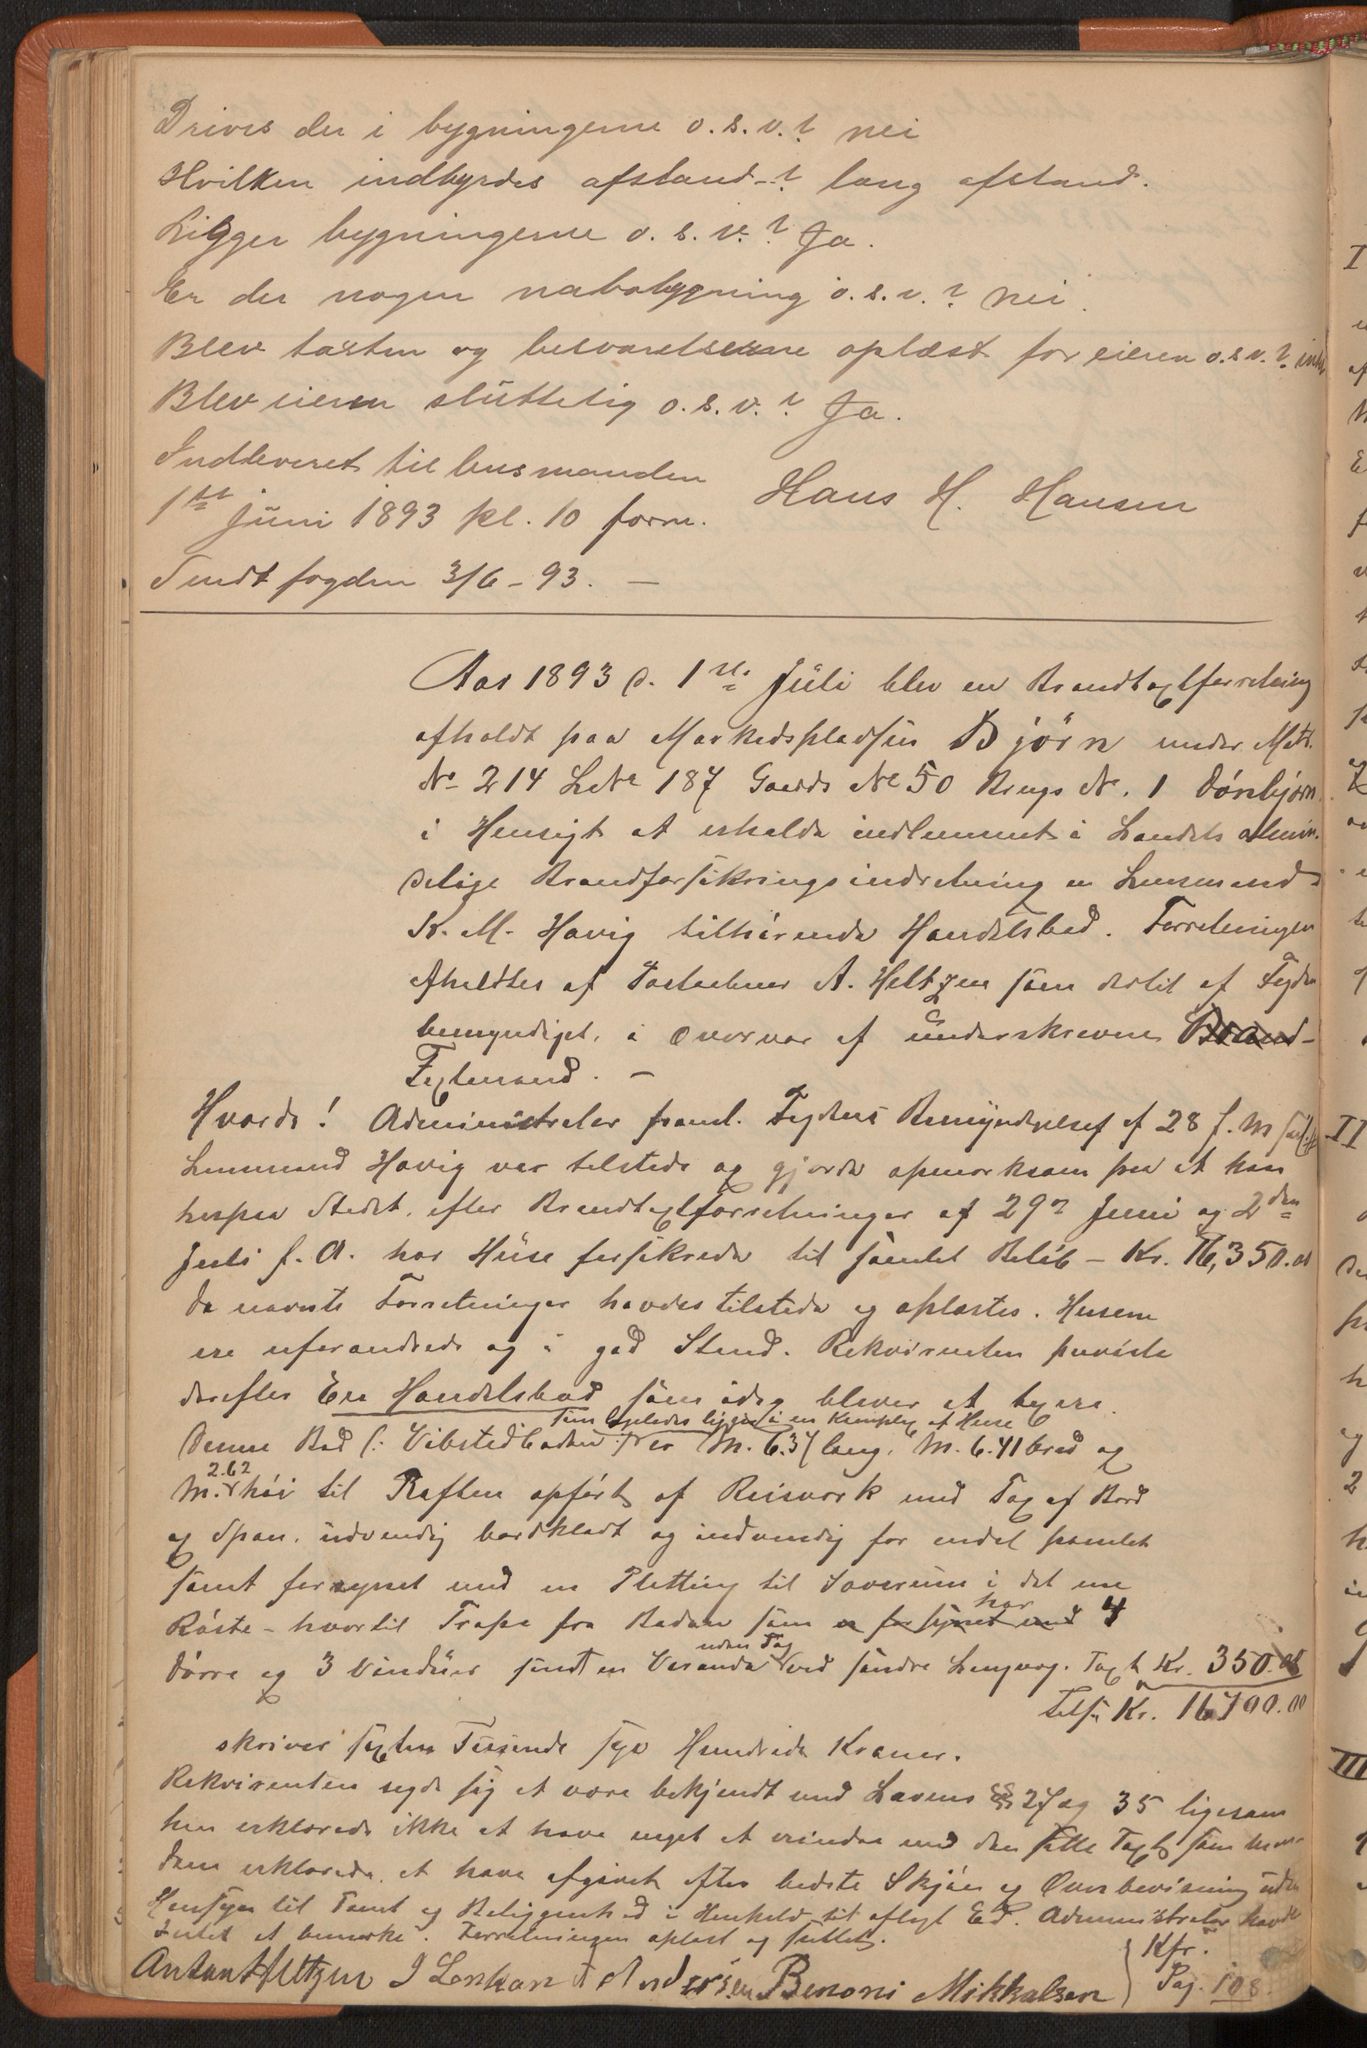 Drives der i bygningerne o.s.v.? nei
Hvilken indbyrdes afstand-? lang afstand.
Ligger bygningerne o.s.v.? Ja.
Er der nogen nabobygning o.s.v.? nei.
Blev taxten og besvarelserne oplæst for eieren o.s.v.?
Blev eieren sluttelig o.s.v.? Ja.
Indleveret til lensmanden
1ste juni 1893 kl. 10 form. Hans H. Hansen
Sendt fogden 3/6-93. —
Aar 1893 d. 1ste Juli blev en Brandtaxtforretning
afholdt paa Markedspladsen Bjørn under Matr.
No 214 LNr 187 Gaards No 50 Brugs N. 1 Dønbjørn
i Hensigt at erholde indlemmet i Landets almin-
delige Brandforsikringsindretning en Lensmand
K. M. Havig tilhørende Handelsbod. Forretningen
afholdtes af Postaabner A. Heltzen som dertil af Fogden
bemyndiget, i Overvær af underskrevne Brand-
Taxtmænd. —
Hvorda! Administrator freml. Fogdens Bemyndigelse af 28 f. M
Lensmand Havig var tilstede og gjorde opmærksom paa at han
herpaa Stedet, efter Brandtaxtforretninger af 29de Juni og 2den
Juli f. A. har Huse forsikrede til samlet Beløb - Kr. 16,350.00
da nævnte Forretninger havdes tilstede og oplæstes. Husene
ere uforandrede og i god Stand. Rekvirenten paaviste
derefter En Handelsbod som idag bliver at taxere.
som ligeledes ligger i en Komplex af Huse
Denne Bod (: Vibstedboden :) er M. 6.37 lang, M. 6.41 bred og
2.62
M. høi til Raften opført af Reisværk med Tag af Bord
og Spon, udvendig bordklædt og indvendig for endel panelet
samt forsynet med en Pletting til Soverum i det ene
har
Røste - hvortil Trappe fra Boden som er forsynet med 4
uden Tag
Dørre og 3 Vinduer samt en Veranda ved søndre Langvæg. Taxt Kr. 350.00
Tils. Kr. 16700.00
skriver sexten Tusinde syv Hundrede Kroner.
Rekvirenten sagde sig at være bekjendt med Lovens §§ 27 og 35 ligesom
han erklærede ikke at have noget at erindre mod den satte Taxt som
erklærede at have afgivet efter bedste Skjøn og Overbevisning uden
Hensyn til Tomt og Beliggenhed i Henhold til aflagt Ed. Administrator havde
Intet at bemærke. Forretningen oplæst og sluttet.
Anton Heltzen J Lorkan Andersen Benoni Mikkalsen } Kfr. Pag. 108.